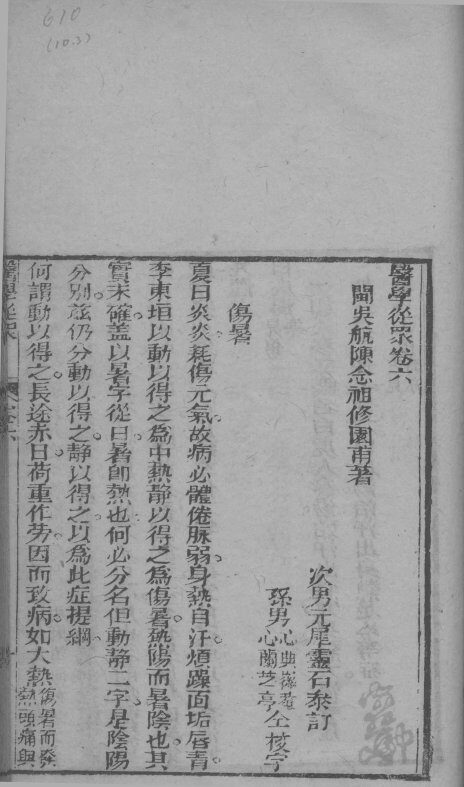 610
(10.3)
醫學從眾卷六
閩吳航陳念祖修園甫著
次男元犀靈石叅訂
孫男心典徽菴
心蘭芝亭仝校字
傷暑
夏日炎炎耗傷元氣故病必體倦脉弱身熱自汗煩躁面垢唇青
李東垣以動以得之為中熱靜以得之為傷暑熱陽而暑陰也其
實未確蓋以暑字從日暑即熱也何必分名但動靜二字是陰陽
分別茲仍分動以得之靜以得之以為此症提綱
何謂動以得之長途赤日荷重作勞因而致病如大熱傷暑而發
熱頭痛與
醫學從眾
卷六